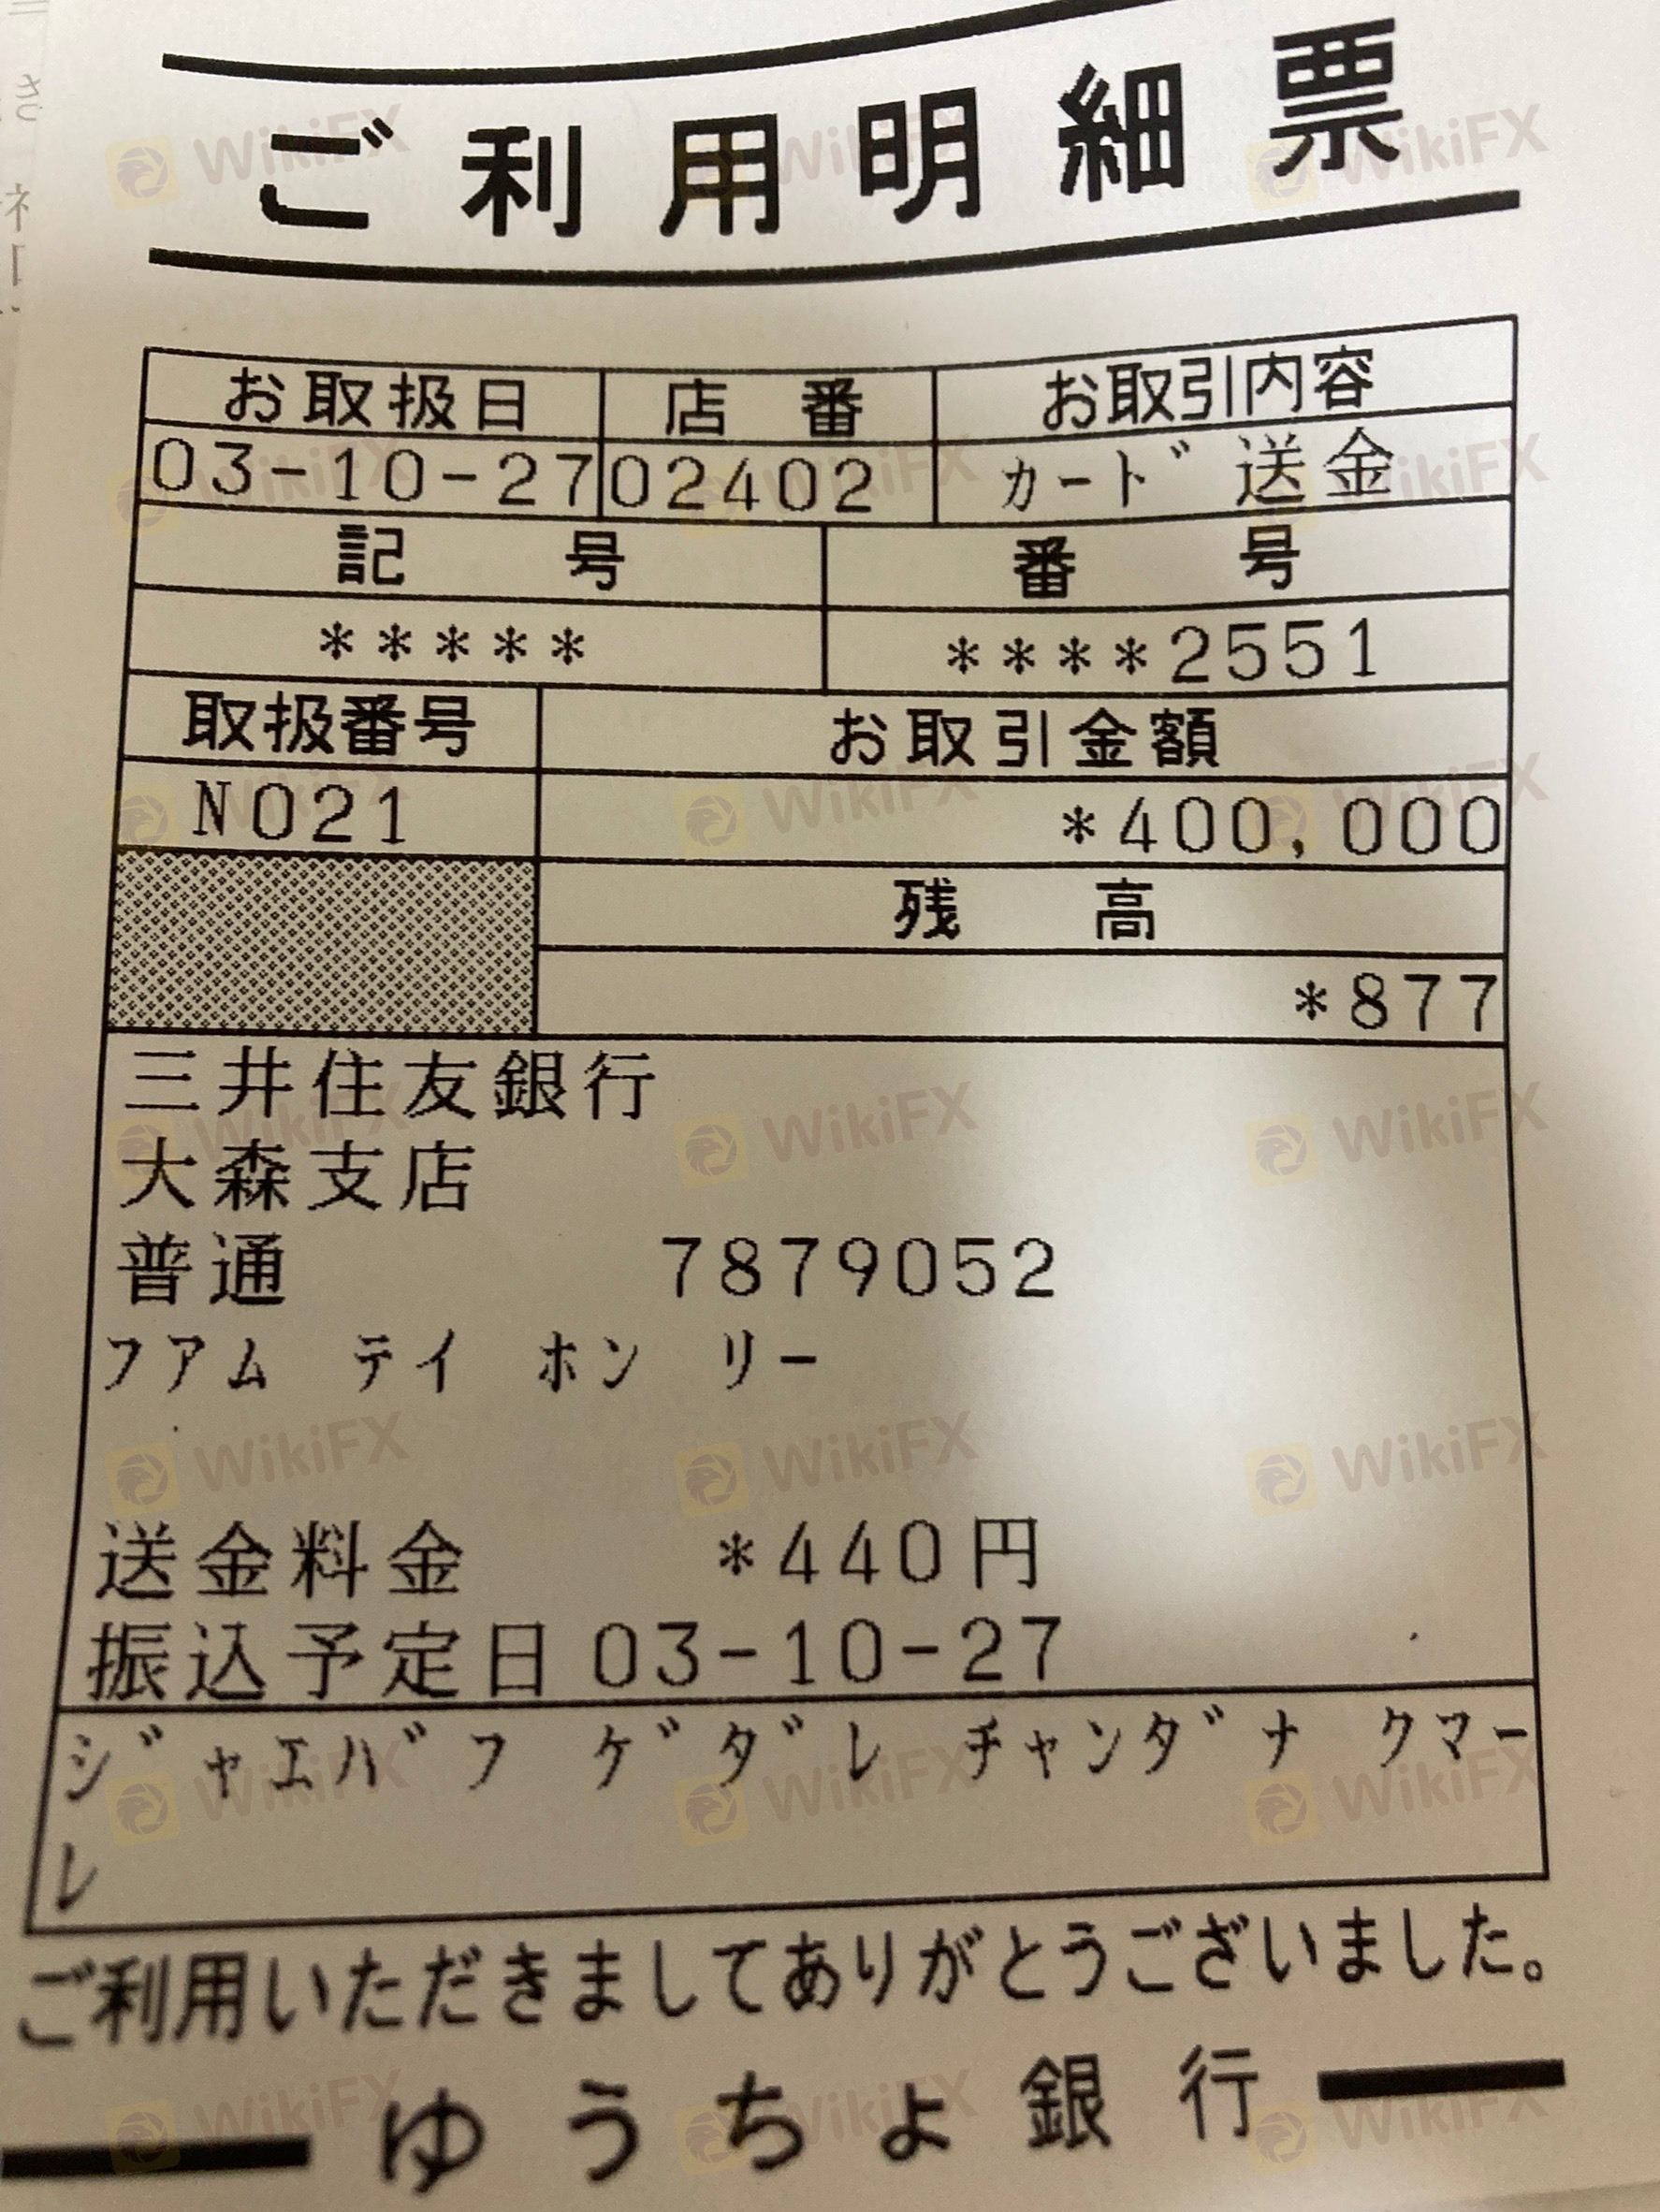 ご利用明細票
お取扱日 店番 お取引内容
03-10-27 02402 カード送金
記号 番号
***** ****2551
取扱番号 お取引金額
N021 *400,000
残高
*877
三井住友銀行
大森支店
普通 7879052
フアム テイ ホン リー
送金料金 *440円
振込予定日 03-10-27
ジャエバフ ゲダレ チャンダナ クマー
レ
ご利用いただきましてありがとうございました。
ゆうちょ銀行
WikiFX